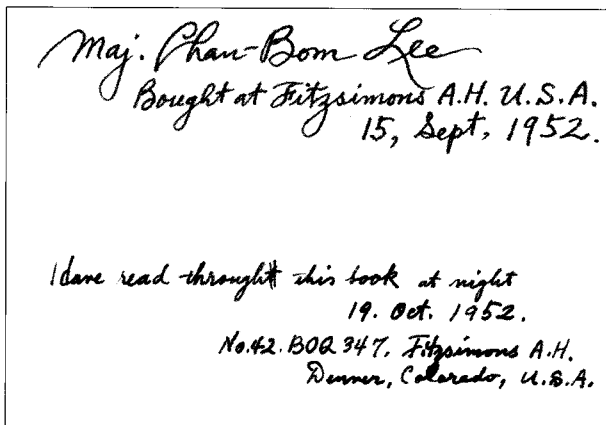 Maj. Chan-Bom Lee
Bought at Fitzsimons A.H. U.S.A.
15, Sept, 1952.
I have read throught this book at night
19. Oct. 1952.
No.42. BOQ 347. Fitzsimons A.H.
Denver, Colorado, U.S.A.